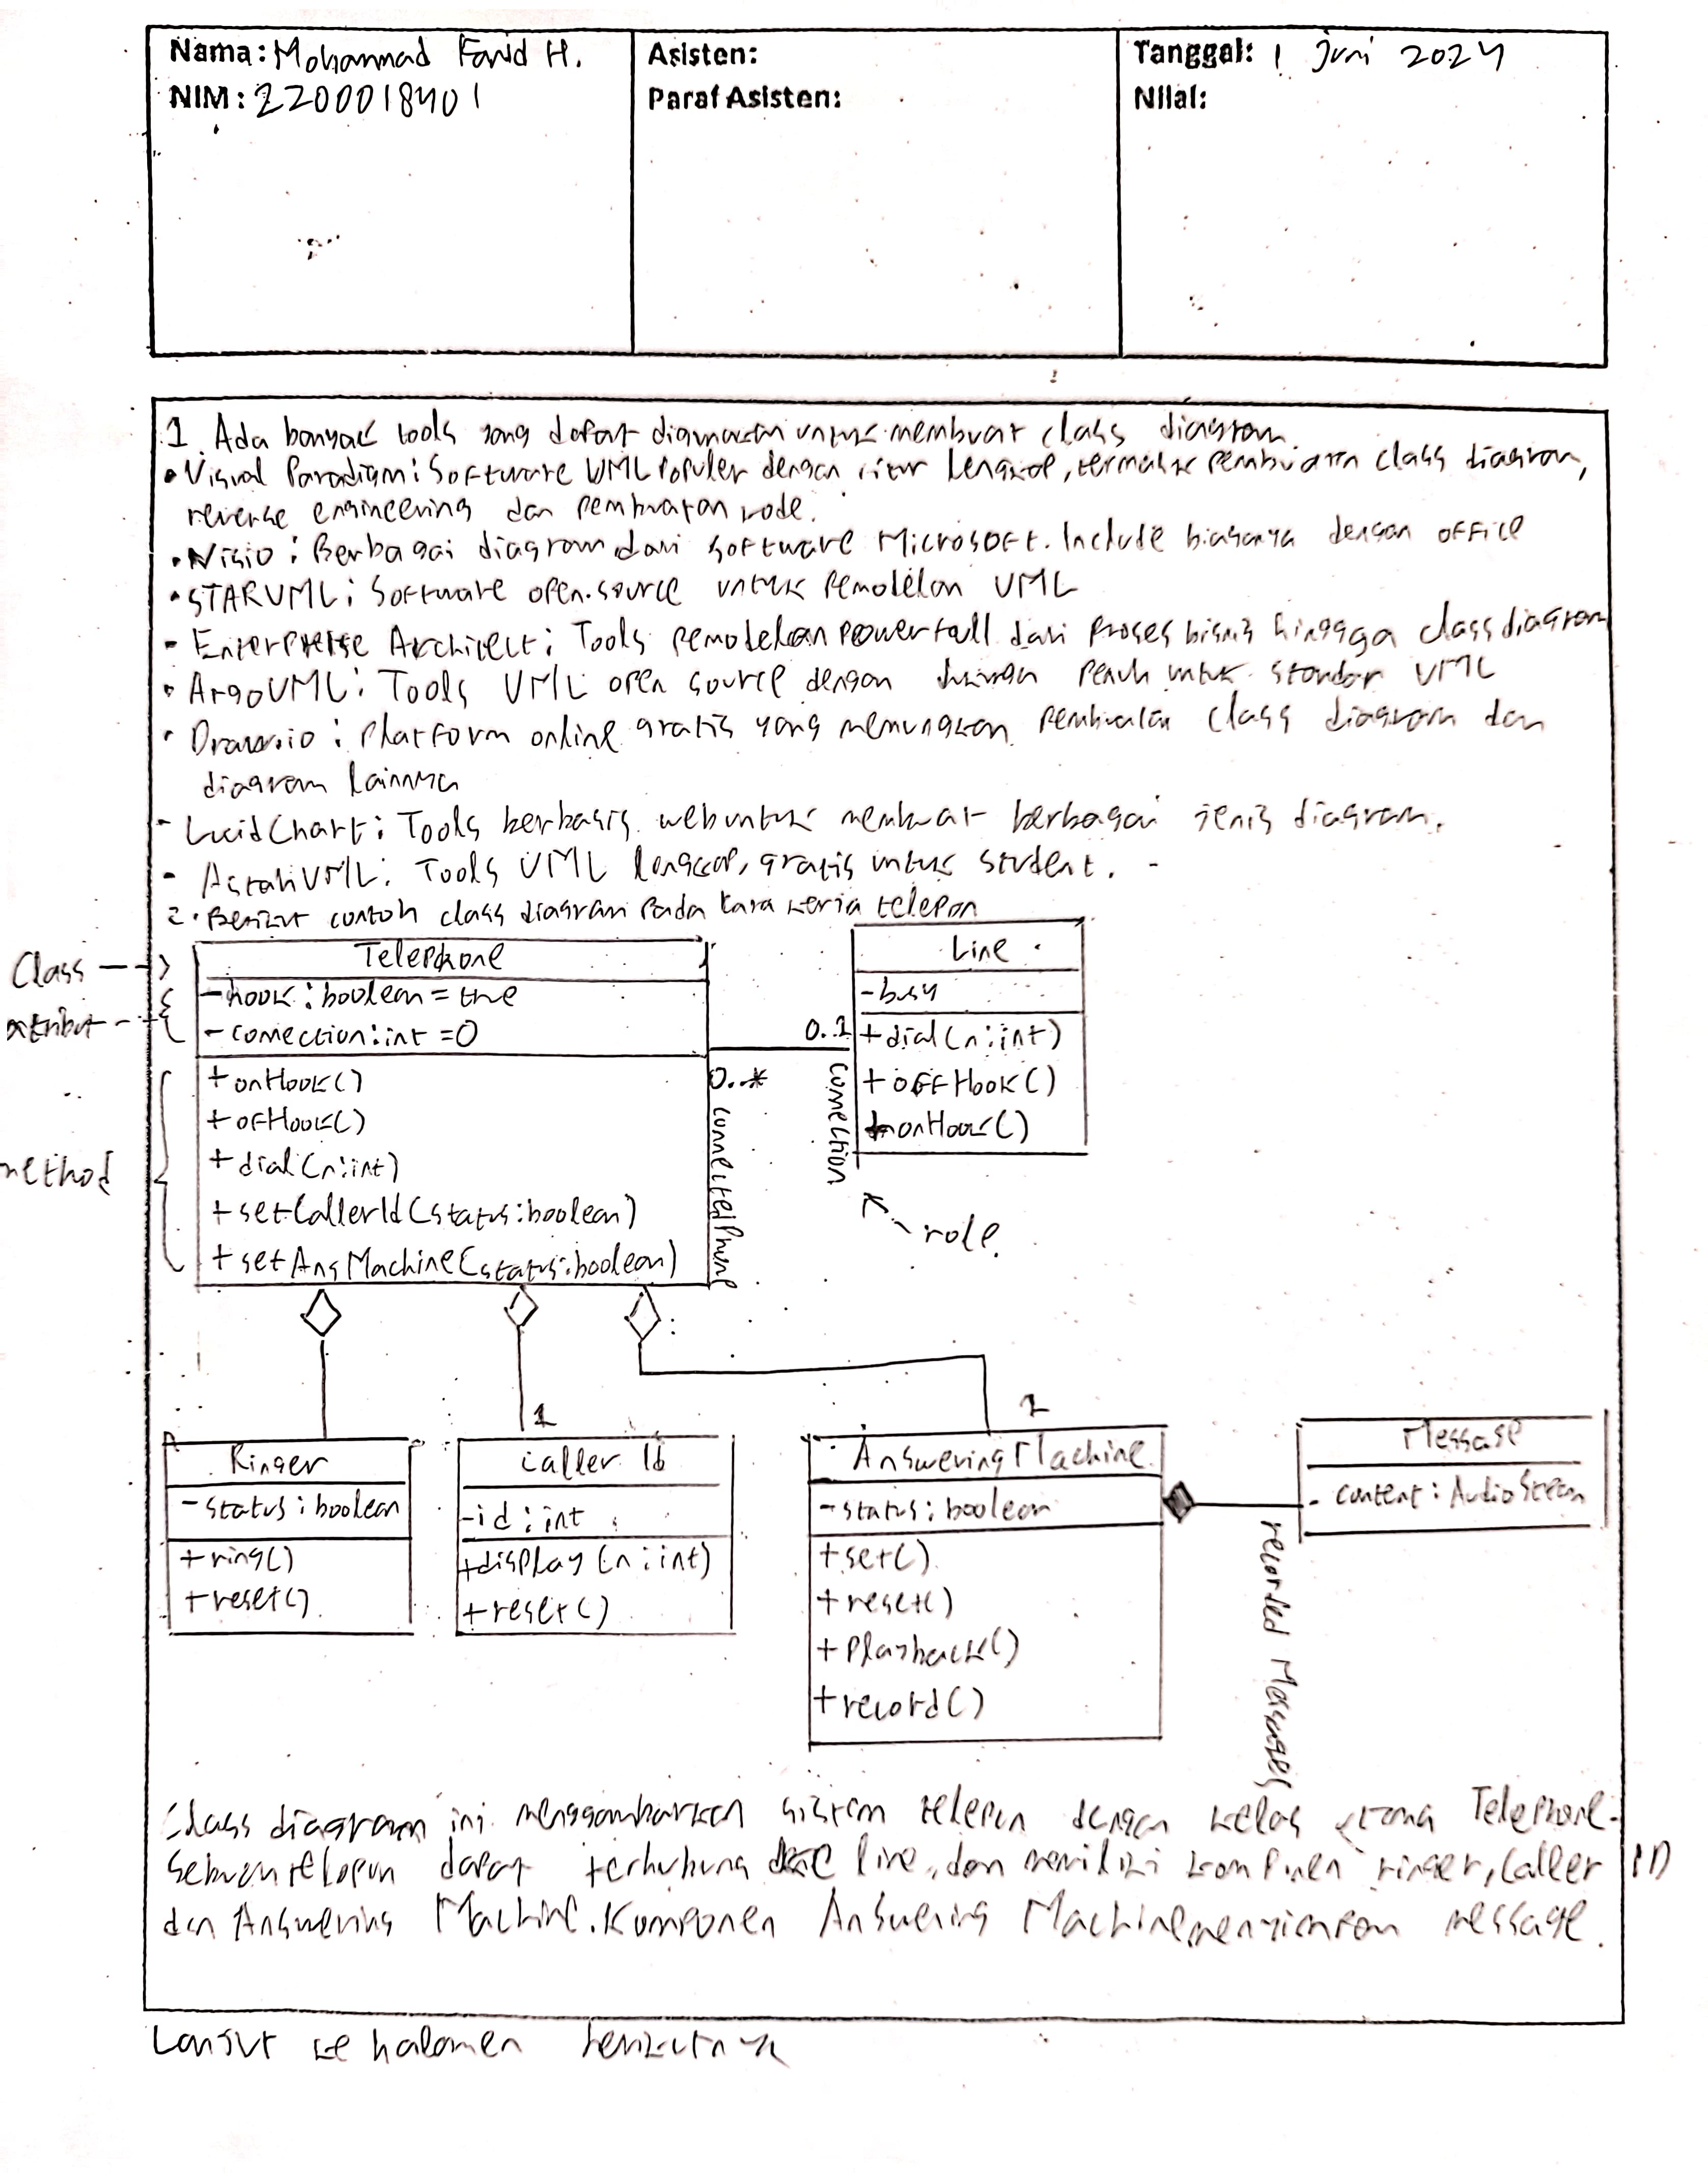 Nama: Mohammad Farid H.
NIM: 2200018401
Asisten:
Paraf Asisten:
Tanggal: 1 Juni 2024
Nilai:
1. Ada banyak tools yang dapat digunakan untuk membuat class diagram.
• Visual Paradigm: Software UML Populer dengan fitur lengkap, termasuk pembuatan class diagram,
reverse engineering dan pembuatan kode.
• Visio: Berbagai diagram dari software Microsoft. Include biasanya dengan office
• STARUML: Software open-source untuk pemodelan UML
- Enterprise Architect: Tools pemodelan powerfull dari proses bisnis hingga class diagram
• ArgoUML: Tools UML open source dengan penuh untuk standar UML
• Draw.io: Platform online gratis yang memungkan pembuatan class diagram dan
diagram lainnya
- LucidChart: Tools berbasis web untuk membuat berbagai jenis diagram.
- AstahUML: Tools UML lengkap, gratis untuk student.
2. Berikut contoh class diagram pada cara kerja telepon
Class
atribut
method
Telephone
- hook: boolean = true
- connection: int = 0
+ onHook()
+ ofHook()
+ dial(n:int)
+ setCallerId(status:boolean)
+ setAnsMachine(status:boolean)
0..1
0..*
connectedPhone
connection
role.
Line
- busy
+ dial(n:int)
+ offHook()
+ onHook()
Ringer
- status: boolean
+ ring()
+ reset()
1
Caller Id
- id: int
+ display(n:int)
+ reset()
1
AnsweringMachine
- status: boolean
+ set()
+ reset()
+ Playback()
+ record()
recorded Messages
Message
- content: AudioStream
Class diagram ini menggambarkan sistem telepon dengan kelas utama Telephone.
Sebuah telepon dapat terhubung ke line, dan memiliki komponen ringer, Caller ID
dan Answering Machine. Komponen Answering Machine menyimpan message.
Lanjut ke halaman berikutnya